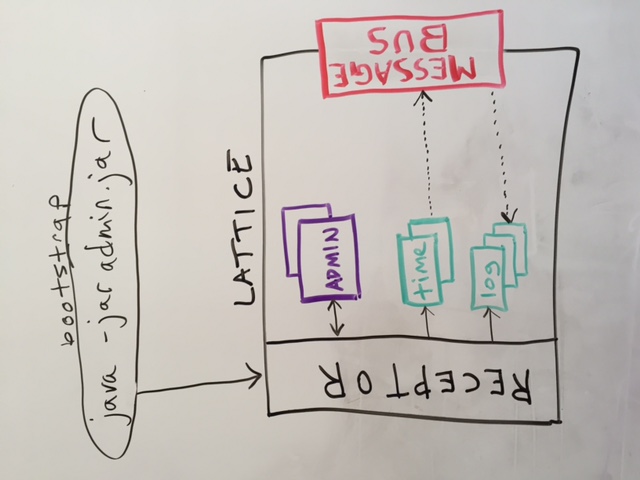 bootstrap
java -jar admin.jar
LATTICE
RECEPTOR
ADMIN
time
log
MESSAGE
BUS